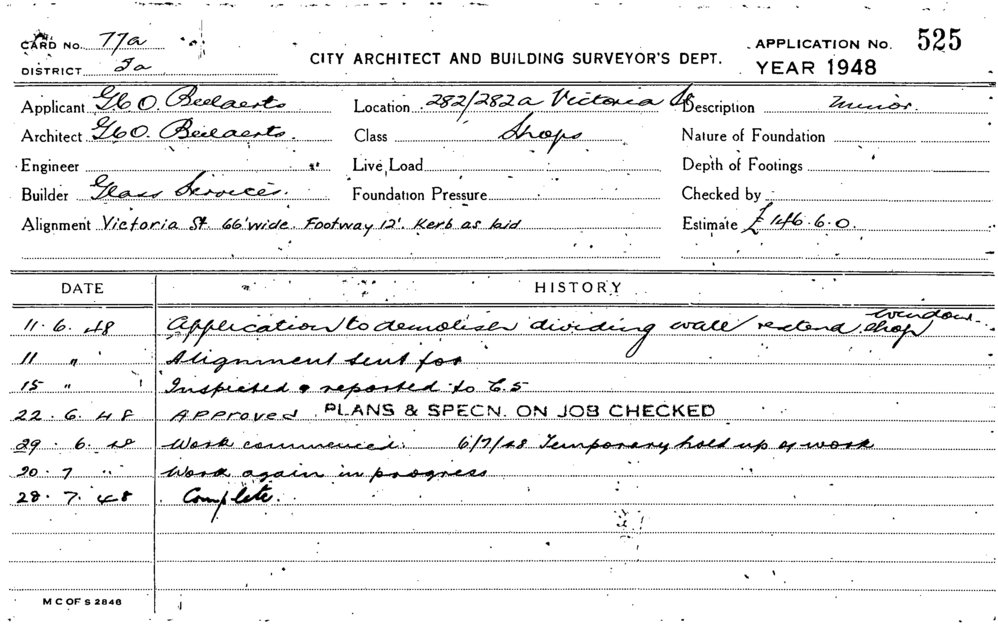 CARD No. 77a
DISTRICT Ia
CITY ARCHITECT AND BUILDING SURVEYOR'S DEPT.
APPLICATION No. 525
YEAR 1948
Applicant G & O. Beilaerts Location 282/282a Victoria St Description Minor.
Architect G & O. Beilaerts. Class Shops Nature of Foundation
Engineer Live Load Depth of Footings
Builder Glass Services. Foundation Pressure Checked by
Alignment Victoria St. 66' wide. Footway 12'. Kerb as laid Estimate £146.6.0.
DATE HISTORY
11.6.48 Application to demolish dividing wall & extend shop window.
11 " Alignment sent for
15 " Inspected & reported to C.S
22.6.48 Approved PLANS & SPECN. ON JOB CHECKED
29.6.48 Work commenced. 6/7/48 Temporary hold up of work
20.7 " Work again in progress
28.7.48 Complete.
M C OF S 2846